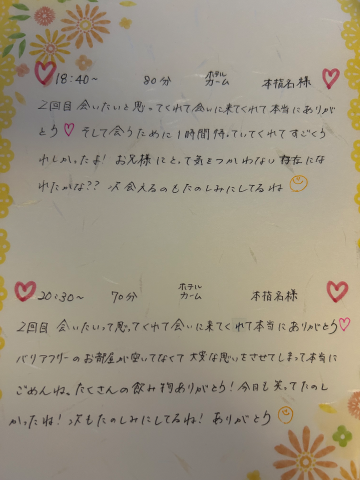 18:40~ 80分 ホテル カーム 本指名様
2回目 会いたいと思ってくれて会いに来てくれて本当にありが
とう♡ そして会うために1時間待っていてくれてすごくう
れしかったよ! お兄様にとって気をつかわない存在にな
れたかな?? 次会えるのもたのしみにしてるね
20:30~ 70分 ホテル カーム 本指名様
2回目 会いたいって思ってくれて会いに来てくれて本当にありがとう♡
バリアフリーのお部屋が空いてなくて大変な思いをさせてしまって本当に
ごめんね。たくさんの飲み物ありがとう! 今日も笑ってたのし
かったね! 次もたのしみにしてるね! ありがとう